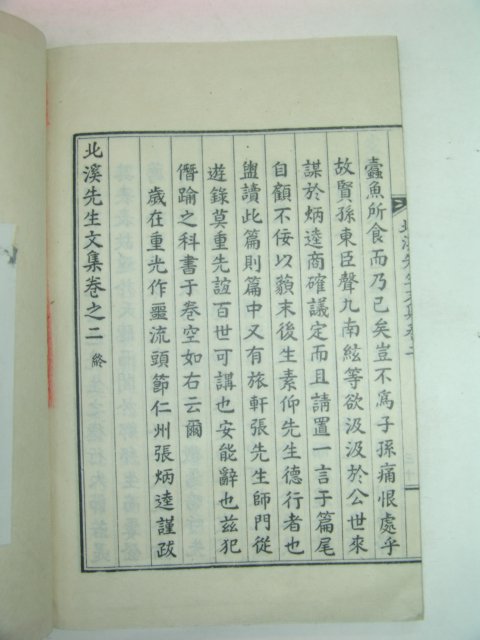 蠹魚所食而乃已矣豈不寃子孫痛恨處乎
故賢孫東臣聲九南鉉等欲汲汲於公世來
謀於炳逵商確議定而且請置一言于篇尾
自顧不佞以藐末後生素仰先生德行者也
盥讀此篇則篇中又有旅軒張先生師門從
遊錄莫重先誼百世可講也安能辭也玆犯
僭踰之科書于卷空如右云爾
歲在重光作噩流頭節仁州張炳逵謹跋
北溪先生文集卷之二 終